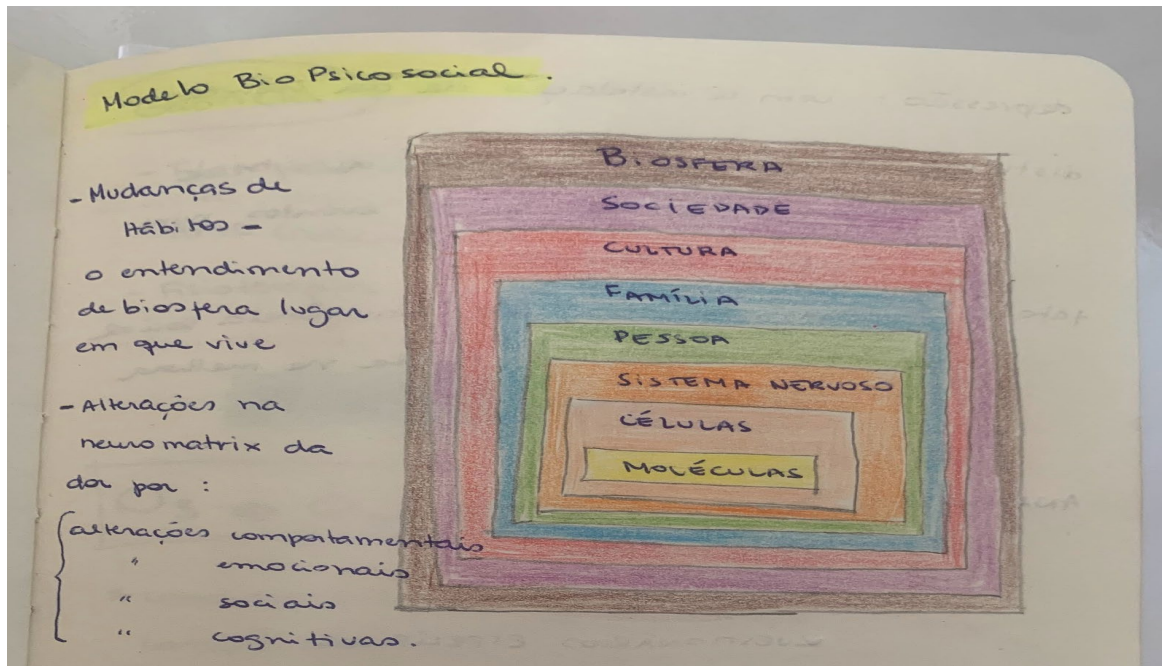 Modelo BioPsicosocial.
- Mudanças de
Hábitos -
o entendimento
de biosfera lugar
em que vive
- Alterações na
neuromatrix da
dor por :
alterações comportamentais
" emocionais
" sociais
" cognitivas.
BIOSFERA
SOCIEDADE
CULTURA
FAMÍLIA
PESSOA
SISTEMA NERVOSO
CÉLULAS
MOLÉCULAS